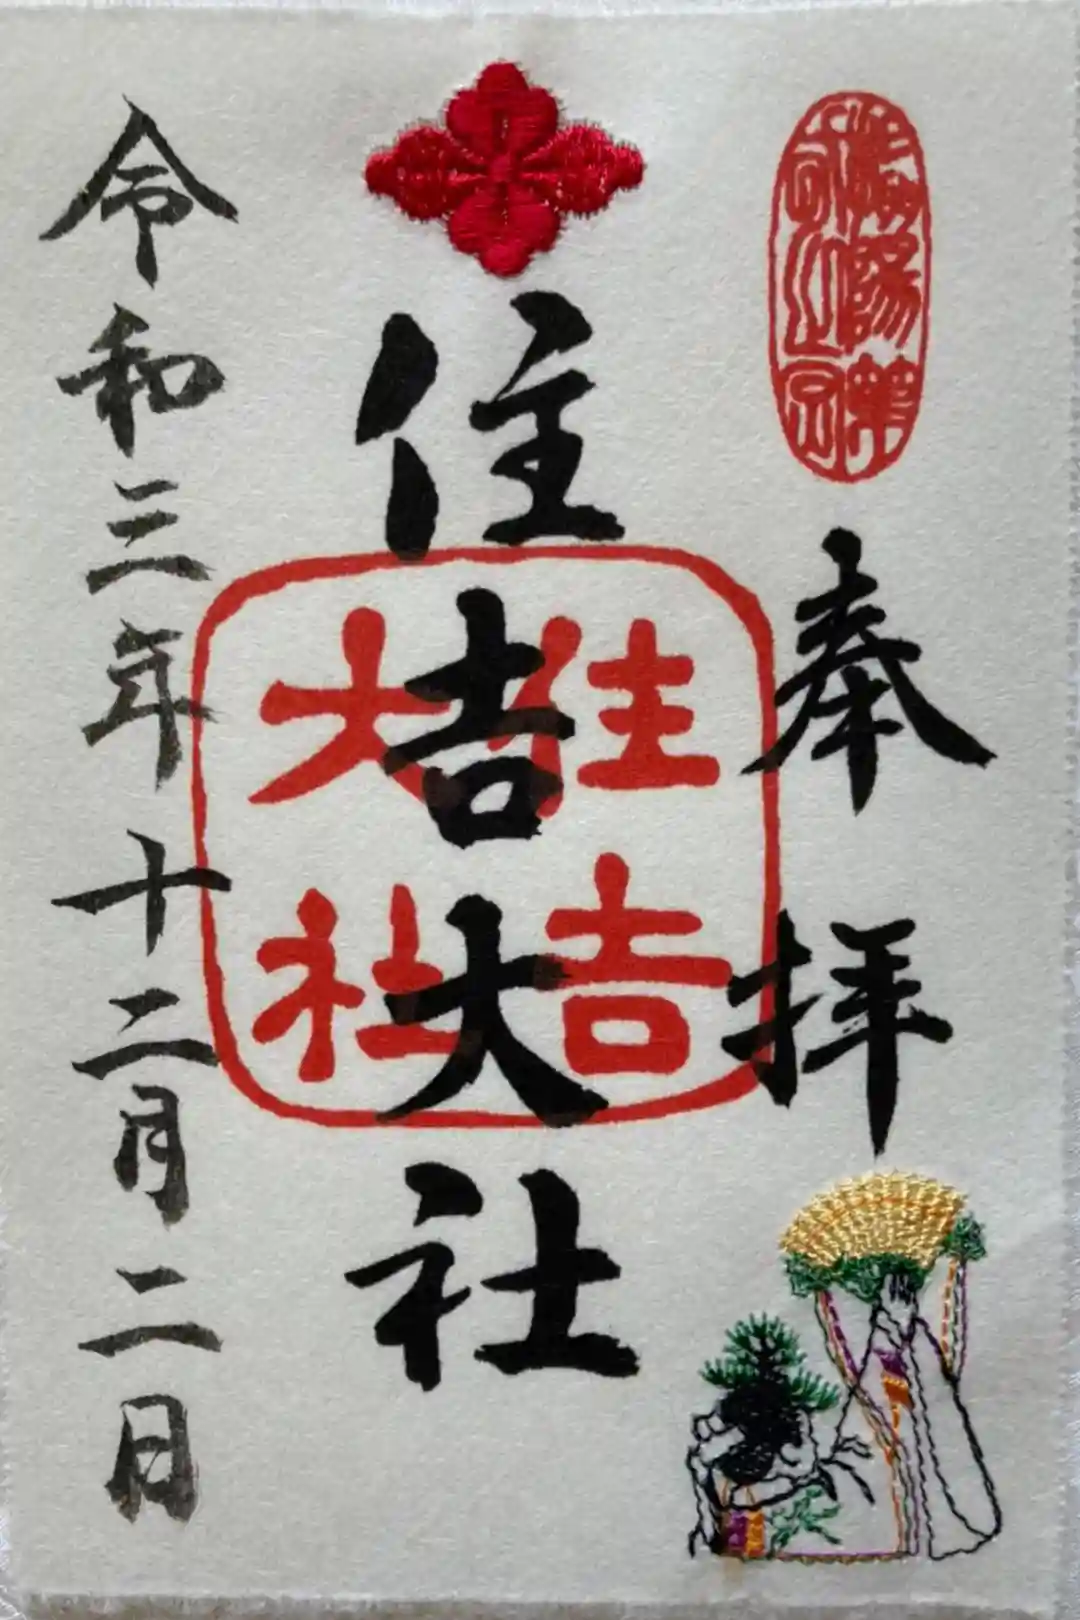 奉拝
住吉大社
住吉
大社
令和三年十二月二日